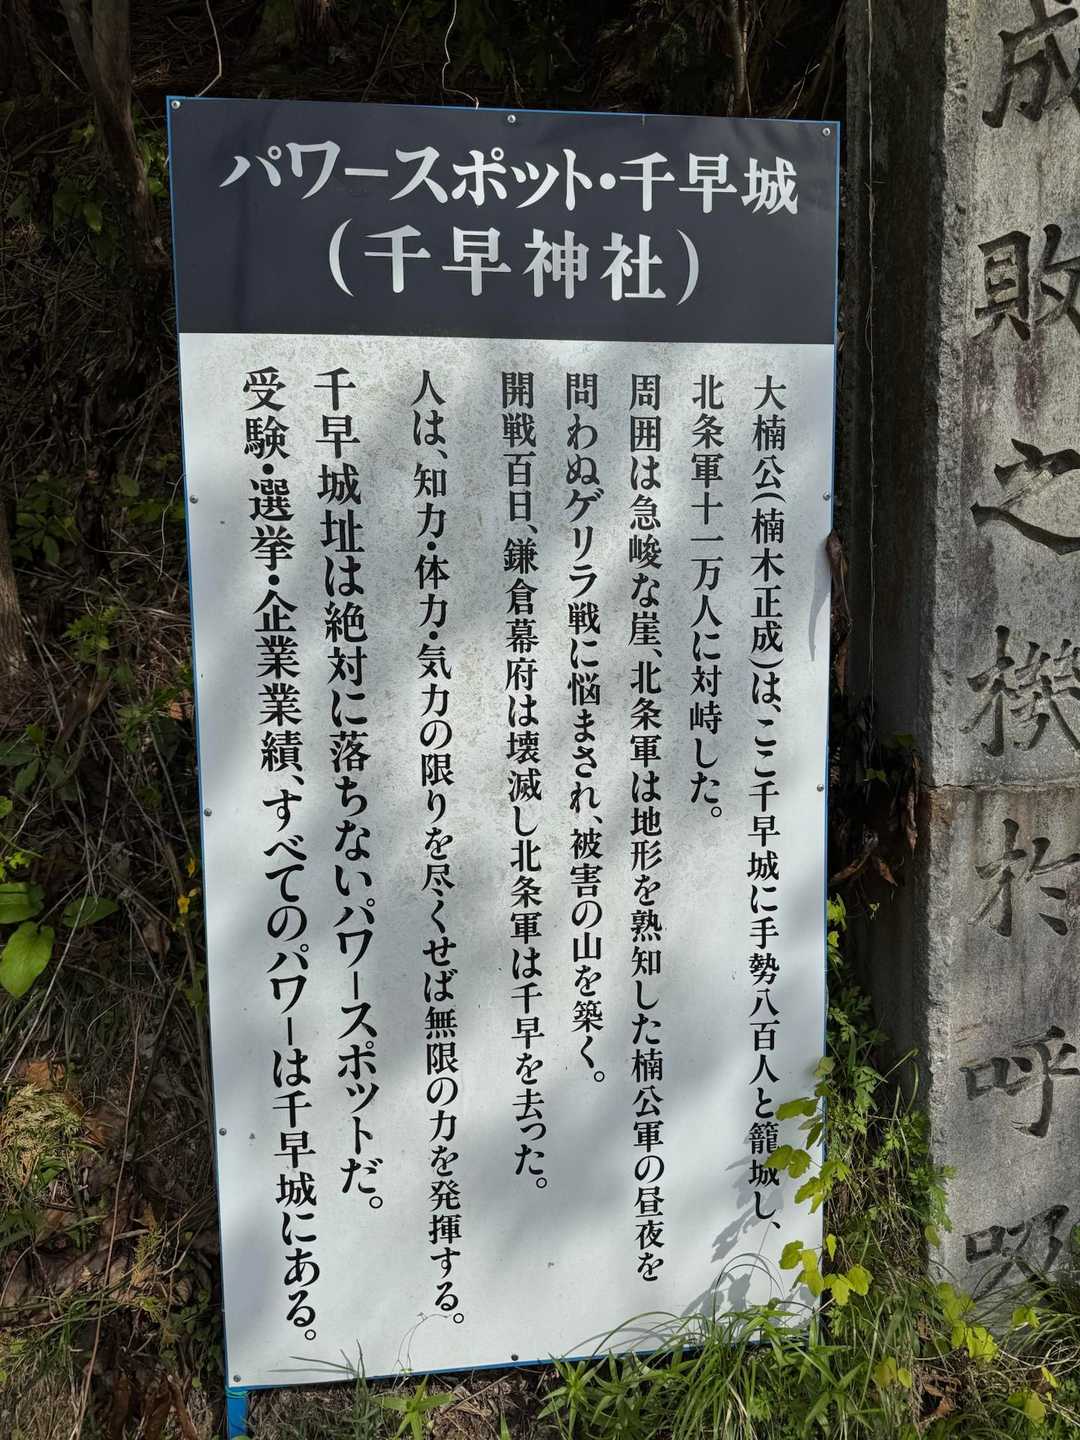 パワースポット・千早城
(千早神社)
大楠公(楠木正成)は、ここ千早城に手勢八百人と籠城し、
北条軍十一万人に対峙した。
周囲は急峻な崖、北条軍は地形を熟知した楠公軍の昼夜を
問わぬゲリラ戦に悩まされ、被害の山を築く。
開戦百日、鎌倉幕府は壊滅し北条軍は千早を去った。
人は、知力・体力・気力の限りを尽くせば無限の力を発揮する。
千早城址は絶対に落ちないパワースポットだ。
受験・選挙・企業業績、すべてのパワーは千早城にある。
成敗之機於呼吸